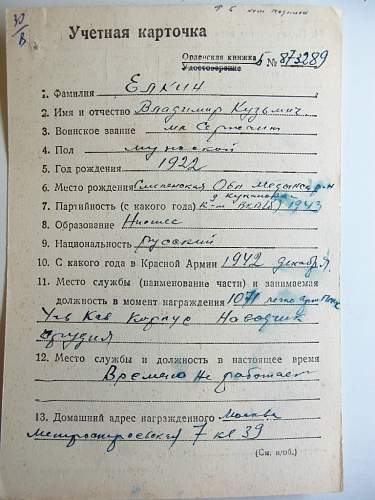 30/В
Учетная карточка
Орденская книжка
Удостоверение Б № 873289
1. Фамилия ЕЛКИН
2. Имя и отчество Владимир Кузьмич
3. Воинское звание мл Сержант
4. Пол мужской
5. Год рождения 1922
6. Место рождения Смоленская Обл Медынск р-н
д
7. Партийность (с какого года) к-т ВКП(б) 1943
8. Образование Низшее
9. Национальность Русский
10. С какого года в Красной Армии 1942 декабря
11. Место службы (наименование части) и занимаемая
должность в момент награждения 1071 легко Арт Полк
Кав Корпус Наводчик
орудия
12. Место службы и должность в настоящее время
Времено не работает
13. Домашний адрес награжденного Москва
Метростроевская 7 кв 39
(См. н/об.)